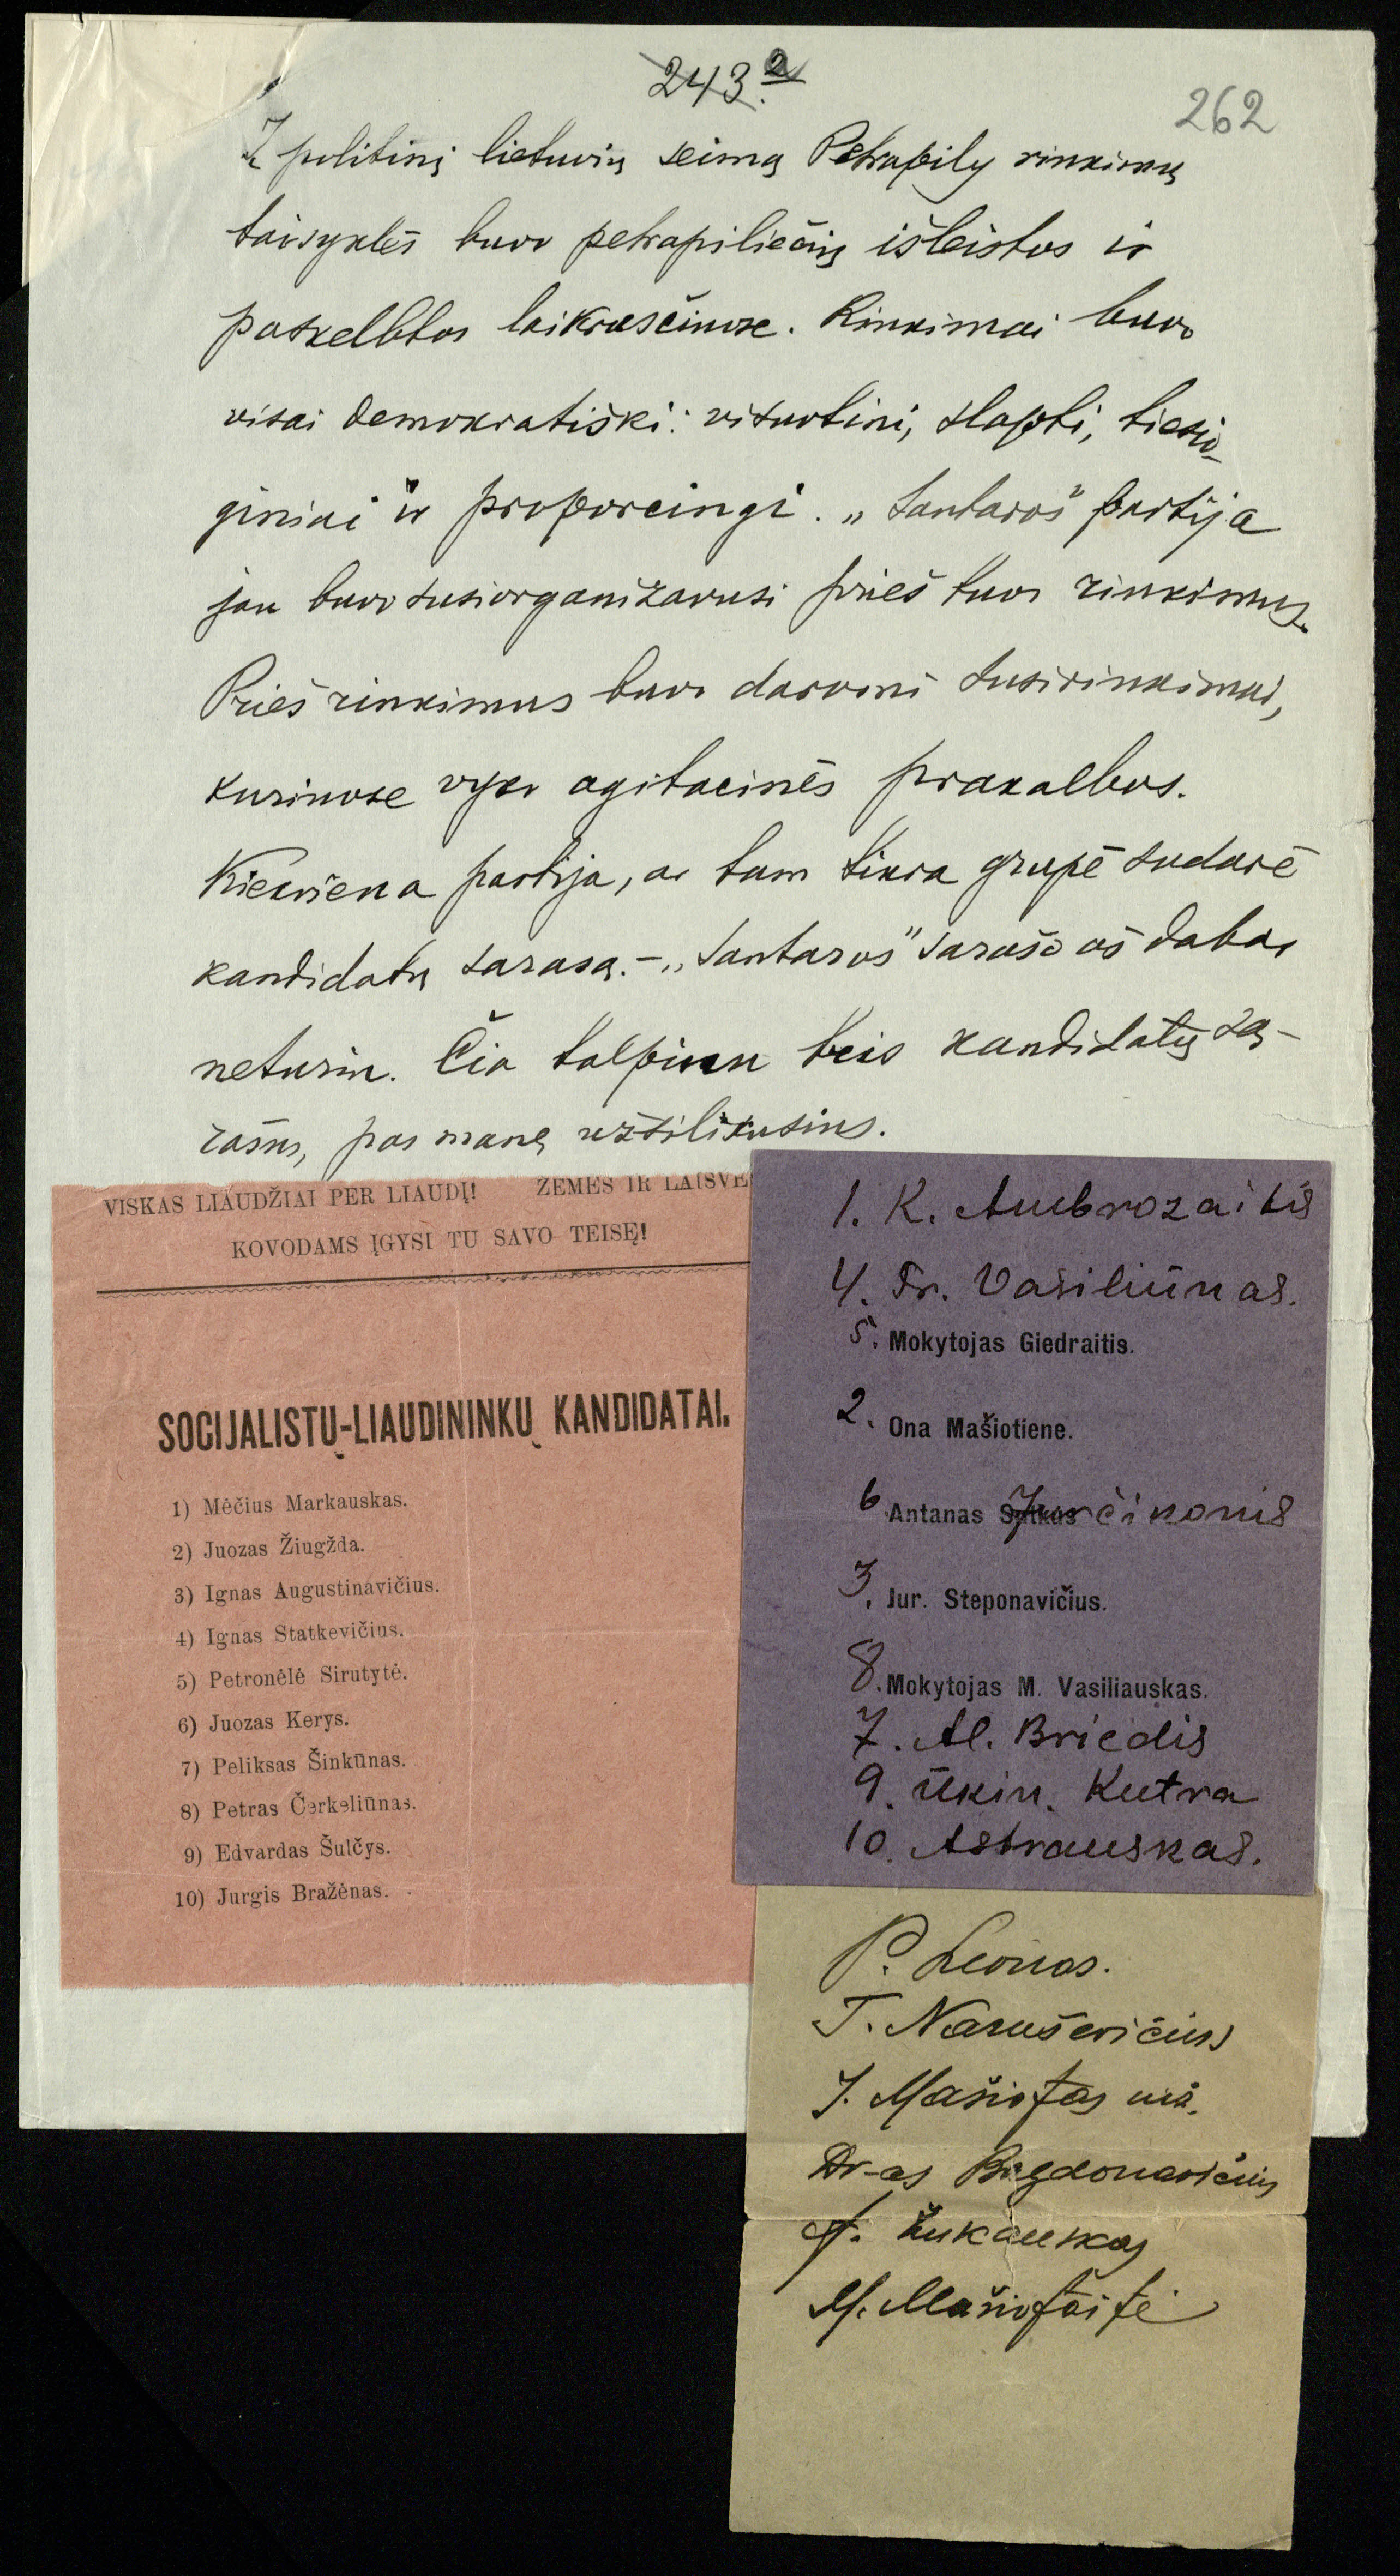 243 2
262
Į politinį lietuvių seimą Petrapily rinkimų
taisyklės buvo petrapiliečių išleistos ir
paskelbtos laikraščiuose. Rinkimai buvo
visai demokratiški: visuotini, slapti, tiesio-
giniai ir proporcingi. „Santaros" partija
jau buvo susiorganizavusi prieš tuos rinkimus.
Prieš rinkimus buvo daromi susirinkimai,
kuriuose vyko agitacinės prakalbos.
Kiekviena partija, ar tam tikra grupė sudarė
kandidatų sąrašą. – „Santaros" sąrašo aš dabar
neturiu. Čia talpinu tris kandidatų są-
rašus, pas mane užsilikusius.
VISKAS LIAUDŽIAI PER LIAUDĮ! ŽEMĖS IR LAISVĖ
KOVODAMS ĮGYSI TU SAVO TEISĘ!
SOCIJALISTŲ-LIAUDININKŲ KANDIDATAI.
1) Mėčius Markauskas.
2) Juozas Žiugžda.
3) Ignas Augustinavičius.
4) Ignas Statkevičius.
5) Petronėlė Sirutytė.
6) Juozas Kerys.
7) Peliksas Šinkūnas.
8) Petras Čerkeliūnas.
9) Edvardas Šulčys.
10) Jurgis Bražėnas.
1. K. Ambrozaitis
4. Fr. Vasiliūnas.
5. Mokytojas Giedraitis.
2. Ona Mašiotiene.
6. Antanas Jurčikonis
3. Jur. Steponavičius.
8. Mokytojas M. Vasiliauskas.
7. Al. Briedis
9. Ūkin. Kutra
10. Astrauskas.
P. Leonas.
T. Naruševičius
J. Mašiotas
Dr-as Bagdonavičius
A. Žukauskas
M. Mašiotaitė